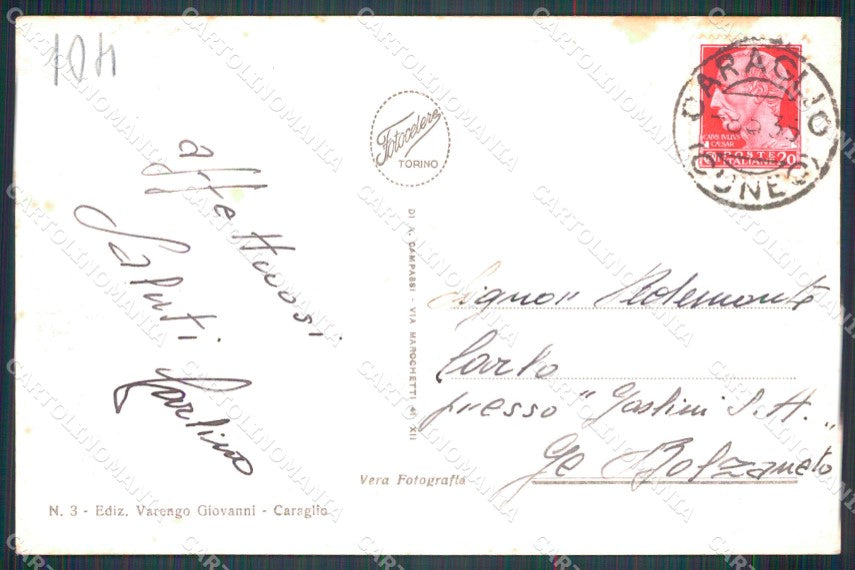 104
affettuosi
Saluti
Carlino
Fotocelere
TORINO
DI A. CAMPASSI - VIA MAROCHETTI 41 XII
CARAGLIO
(CUNEO)
CAIVS IVLIVS
CAESAR
POSTE
ITALIANE 20
Signor Pedemonte
Carlo
presso "Gaslini S.A."
Ge Bolzaneto
Vera Fotografia
N. 3 - Ediz. Varengo Giovanni - Caraglio
CARTOLINOMANIA